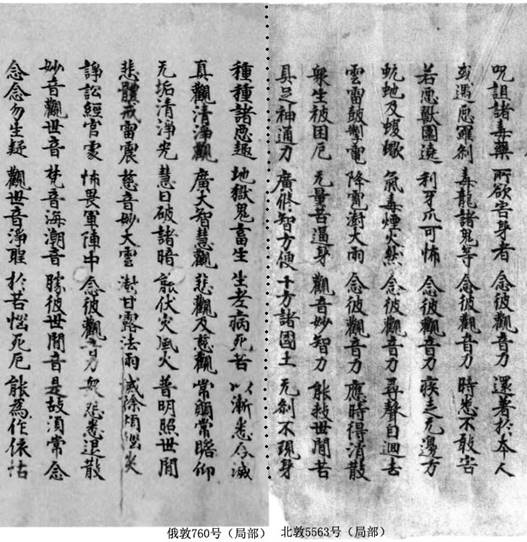 呪詛諸毒藥 所欲害身者 念彼觀音力 還著於本人
或遇惡羅刹 毒龍諸鬼等 念彼觀音力 時悉不敢害
若惡獸圍遶 利牙爪可怖 念彼觀音力 疾走无邊方
蚖虵及蝮蠍 氣毒煙火燃 念彼觀音力 尋聲自迴去
雲雷皷掣電 降雹澍大雨 念彼觀音力 應時得消散
衆生被困厄 无量苦逼身 觀音妙智力 能救世間苦
具足神通力 廣修智方便 十方諸國土 无刹不現身
種種諸惡趣 地獄鬼畜生 生老病死苦 以漸悉令滅
真觀清淨觀 廣大智慧觀 悲觀及慈觀 常願常瞻仰
无垢清淨光 慧日破諸暗 能伏災風火 普明照世間
悲體戒雷震 慈音妙大雲 澍甘露法雨 滅除煩惱炎
諍訟經官處 怖畏軍陣中 念彼觀音力 衆怨悉退散
妙音觀世音 梵音海潮音 勝彼世間音 是故須常念
念念勿生疑 觀世音淨聖 於苦惱死厄 能為作依怙
俄敦760号（局部） 北敦5563号（局部）